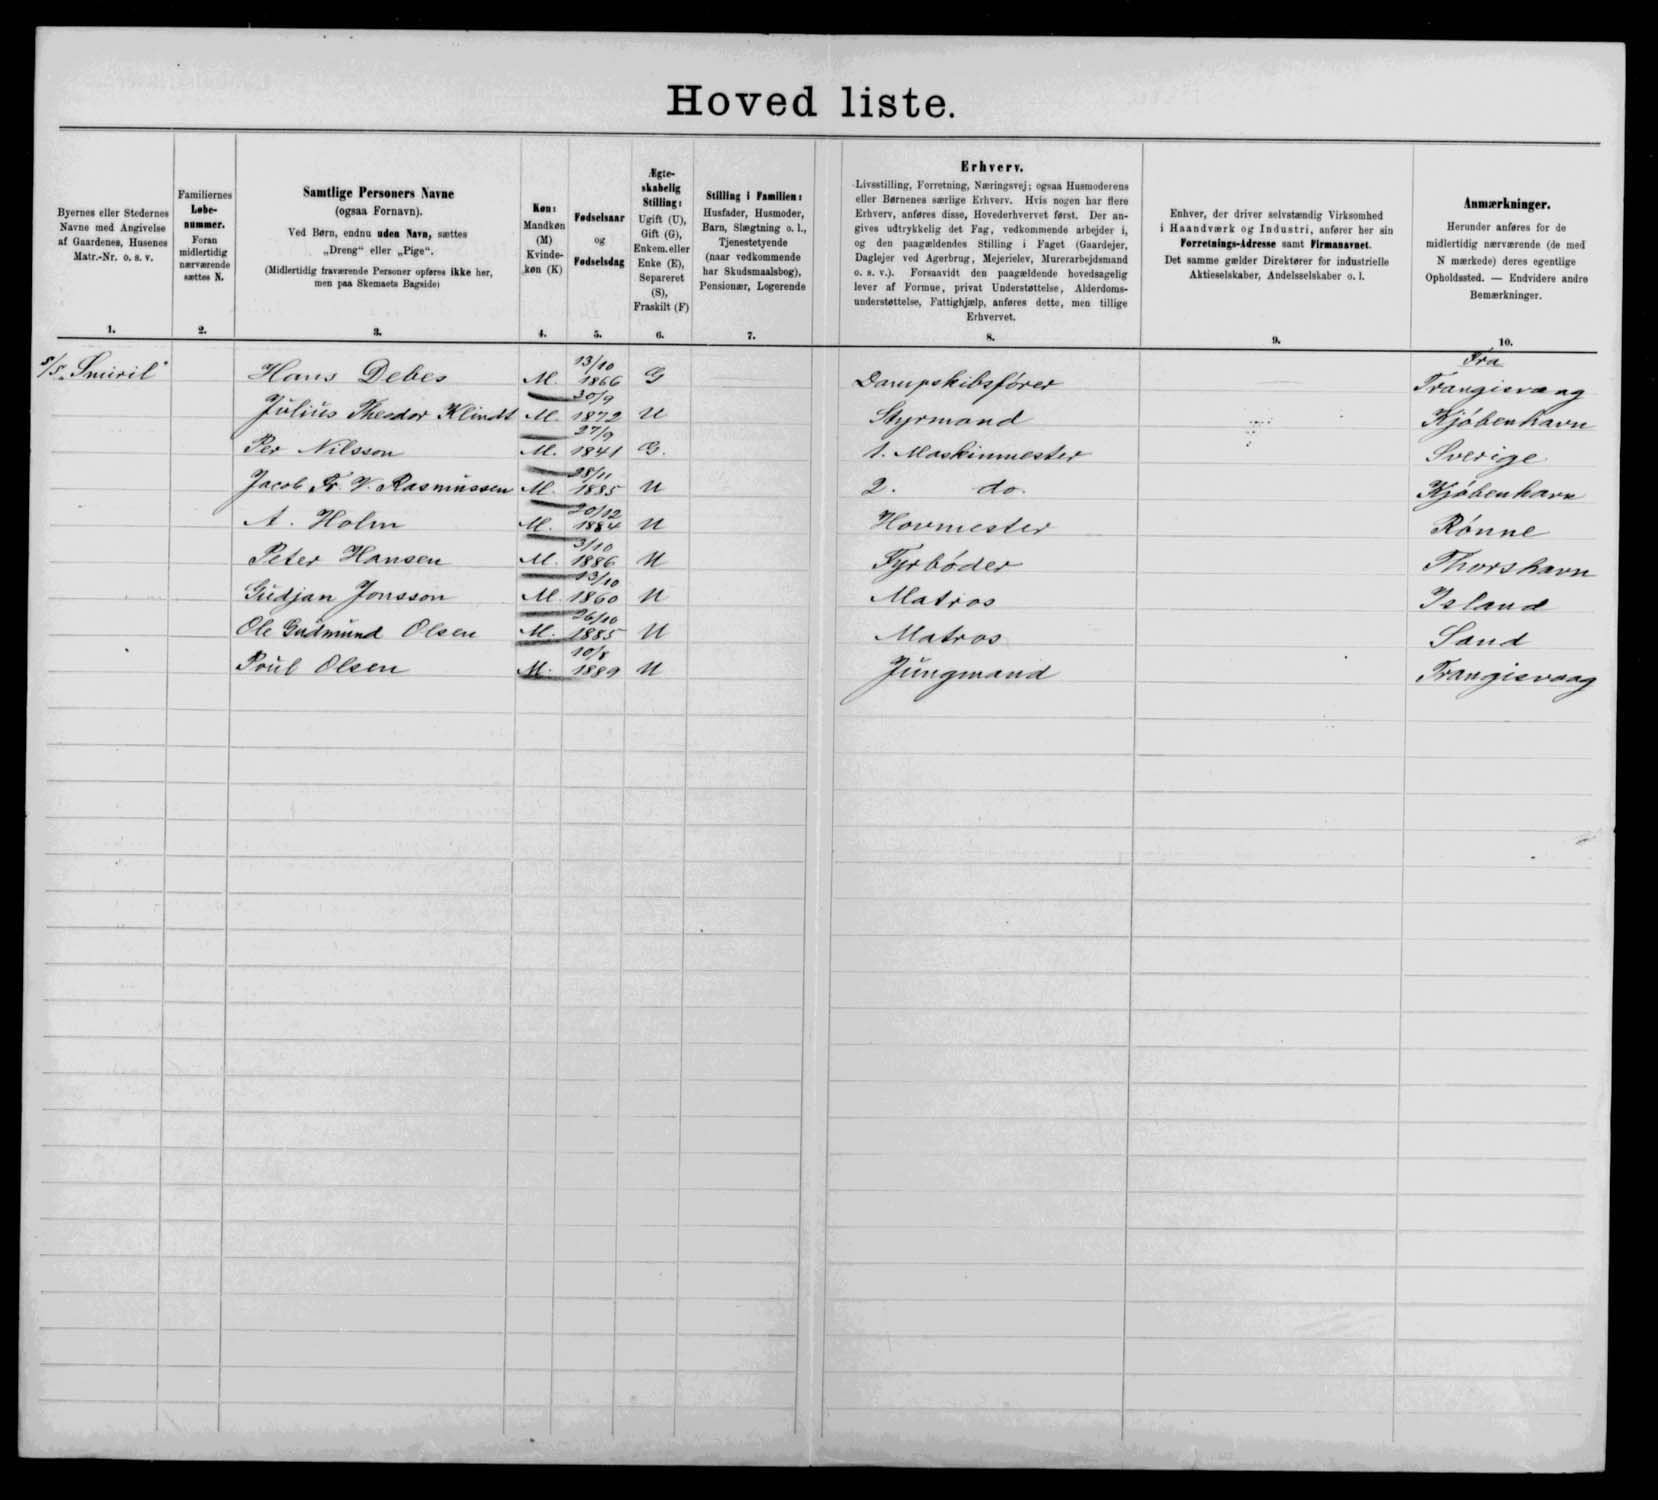 Hoved liste.
Byernes eller Stedernes
Navne med Angivelse
af Gaardenes, Husenes
Matr.-Nr. o. s. v.
1.
Familiernes
Løbe-
nummer.
Foran
midlertidig
nærværende
sættes N.
2.
Samtlige Personers Navne
(ogsaa Fornavn).
Ved Børn, endnu uden Navn, sættes
„Dreng“ eller „Pige“.
(Midlertidig fraværende Personer opføres ikke her,
men paa Skemaets Bagside)
3.
Køn:
Mandkøn
(M)
Kvinde-
køn (K)
4.
Fødselsaar
og
Fødselsdag
5.
Ægte-
skabelig
Stilling:
Ugift (U),
Gift (G),
Enkem. eller
Enke (E),
Separeret
(S),
Fraskilt (F)
6.
Stilling i Familien:
Husfader, Husmoder,
Barn, Slægtning o. l.,
Tjenestetyende
(naar vedkommende
har Skudsmaalsbog),
Pensionær, Logerende
7.
Erhverv.
Livsstilling, Forretning, Næringsvej; ogsaa Husmoderens
eller Børnenes særlige Erhverv. Hvis nogen har flere
Erhverv, anføres disse, Hovederhvervet først. Der an-
gives udtrykkelig det Fag, vedkommende arbejder i,
og den paagældendes Stilling i Faget (Gaardejer,
Daglejer ved Agerbrug, Mejerielev, Murerarbejdsmand
o. s. v.). Forsaavidt den paagældende hovedsagelig
lever af Formue, privat Understøttelse, Alderdoms-
understøttelse, Fattighjælp, anføres dette, men tillige
Erhvervet.
8.
Enhver, der driver selvstændig Virksomhed
i Haandværk og Industri, anfører her sin
Forretnings-Adresse samt Firmanavnet.
Det samme gælder Direktører for industrielle
Aktieselskaber, Andelsselskaber o. l.
9.
Anmærkninger.
Herunder anføres for de
midlertidig nærværende (de med
N mærkede) deres egentlige
Opholdssted. — Endvidere andre
Bemærkninger.
10.
S/S „Smiril“ Hans Debes M. 13/10 1866 G Dampskibsfører Fra Trangisvaag
Julius Theodor Klindt M. 30/9 1872 U Styrmand Kjøbenhavn
Per Nilsson M. 27/9 1841 G. 1. Maskinmester Sverige
Jacob Fr. V. Rasmussen M. 28/11 1885 U 2. do. Kjøbenhavn
A. Holm M. 20/12 1884 U Hovmester Rønne
Peter Hansen M. 3/10 1886 U Fyrbøder Thorshavn
Gudjan Jonsson M. 13/10 1860 U Matros Island
Ole Gudmund Olsen M. 26/10 1885 U Matros Sand
Poul Olsen M. 10/8 1889 U Jungmand Trangisvaag